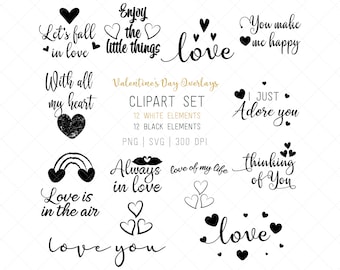 Let's fall
in love
Enjoy
the
little things
love
You make
me happy
With all
my heart
Valentine's Day Overlays
CLIPART SET
12 WHITE ELEMENTS
12 BLACK ELEMENTS
PNG | SVG | 300 DPI
I JUST
Adore you
Love is
in the air
Always
in love
Love of my life
Thinking
of You
love you
love